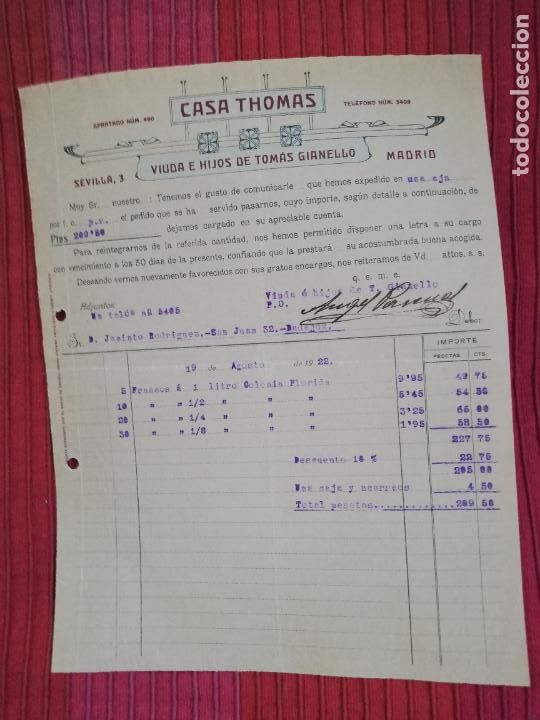 todocoleccion.net
CASA THOMAS
APARTADO NÚM. 490
TELÉFONO NÚM. 3409
SEVILLA, 3
VIUDA E HIJOS DE TOMÁS GIANELLO
MADRID
Muy Sr. nuestro: Tenemos el gusto de comunicarle que hemos expedido en una caja
por f. c. p.v. el pedido que se ha servido pasarnos, cuyo importe, según detalle a continuación, de
Ptas 209'50 dejamos cargado en su apreciable cuenta.
Para reintegrarnos de la referida cantidad, nos hemos permitido disponer una letra a su cargo
con vencimiento a los 30 días de la presente, confiando que la prestará su acostumbrada buena acogida.
Deseando vernos nuevamente favorecidos con sus gratos encargos, nos reiteramos de Vd. attos. s. s.
q. e. m. e.
Adjunto: Viuda é hijos de T. Gianello
Un talón nº 5405 P.O.
Sr. D. Jacinto Rodriguez.-San Juan 32.-Badajoz. Debe:
IMPORTE
PESETAS CTS.
19 de Agosto de 1922.
5 Frascos á 1 litro Colonia Florida 9'95 49 75
10 " " 1/2 " " 5'45 54 50
20 " " 1/4 " " 3'25 65 00
30 " " 1/8 " " 1'95 58 50
227 75
Descuento 10 % 22 75
205 00
Una caja y acarreos 4 50
Total pesetas. 209 50